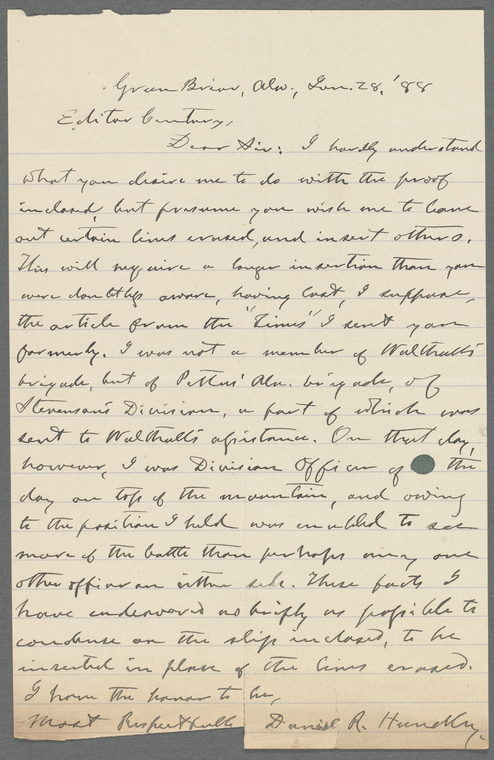 Green Briar, Ala., Jan. 28, '88
Editor Century,
Dear Sir: I hardly understand
what you desire me to do with the proof
inclosed, but presume you wish me to leave
out certain lines erased, and insert others.
This will require a longer insertion than you
were doubtless aware, having lost, I suppose,
the article from the "Times" I sent you
formerly. I was not a member of Walthall's
brigade, but of Pettus' Ala. brigade, of
Stevenson's Division, a part of which was
sent to Walthall's assistance. On that day,
however, I was Division Officer of the
day on top of the mountain, and owing
to the position I held was enabled to see
more of the battle than perhaps any one
other officer on either side. These facts I
have endeavored as briefly as possible to
condense on the slip inclosed, to be
inserted in place of the lines erased.
I have the honor to be,
Most Respectfully Daniel R. Hundley.